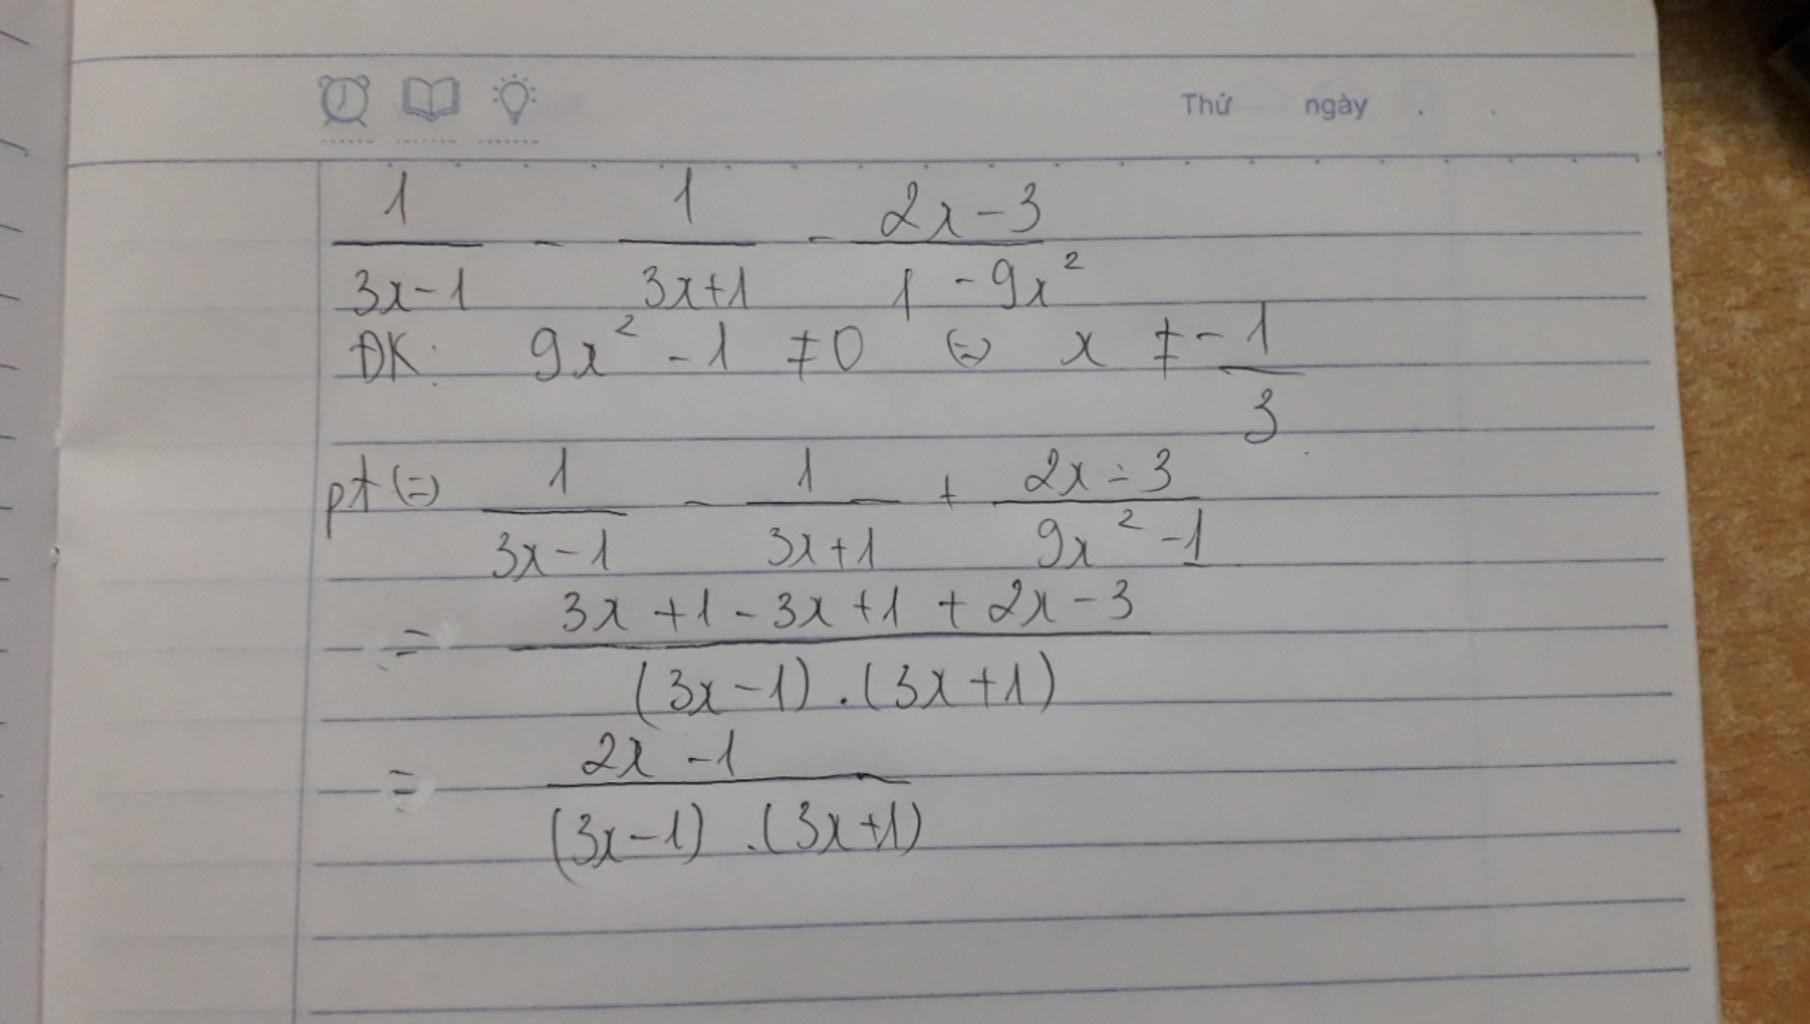 Thứ ngày . .
1/(3x-1) - 1/(3x+1) - (2x-3)/(1-9x²)
ĐK: 9x² - 1 ≠ 0 (=) x ≠ -1/3
pt (=) 1/(3x-1) - 1/(3x+1) + (2x-3)/(9x²-1)
= (3x+1-3x+1+2x-3)/((3x-1).(3x+1))
= (2x-1)/((3x-1).(3x+1))